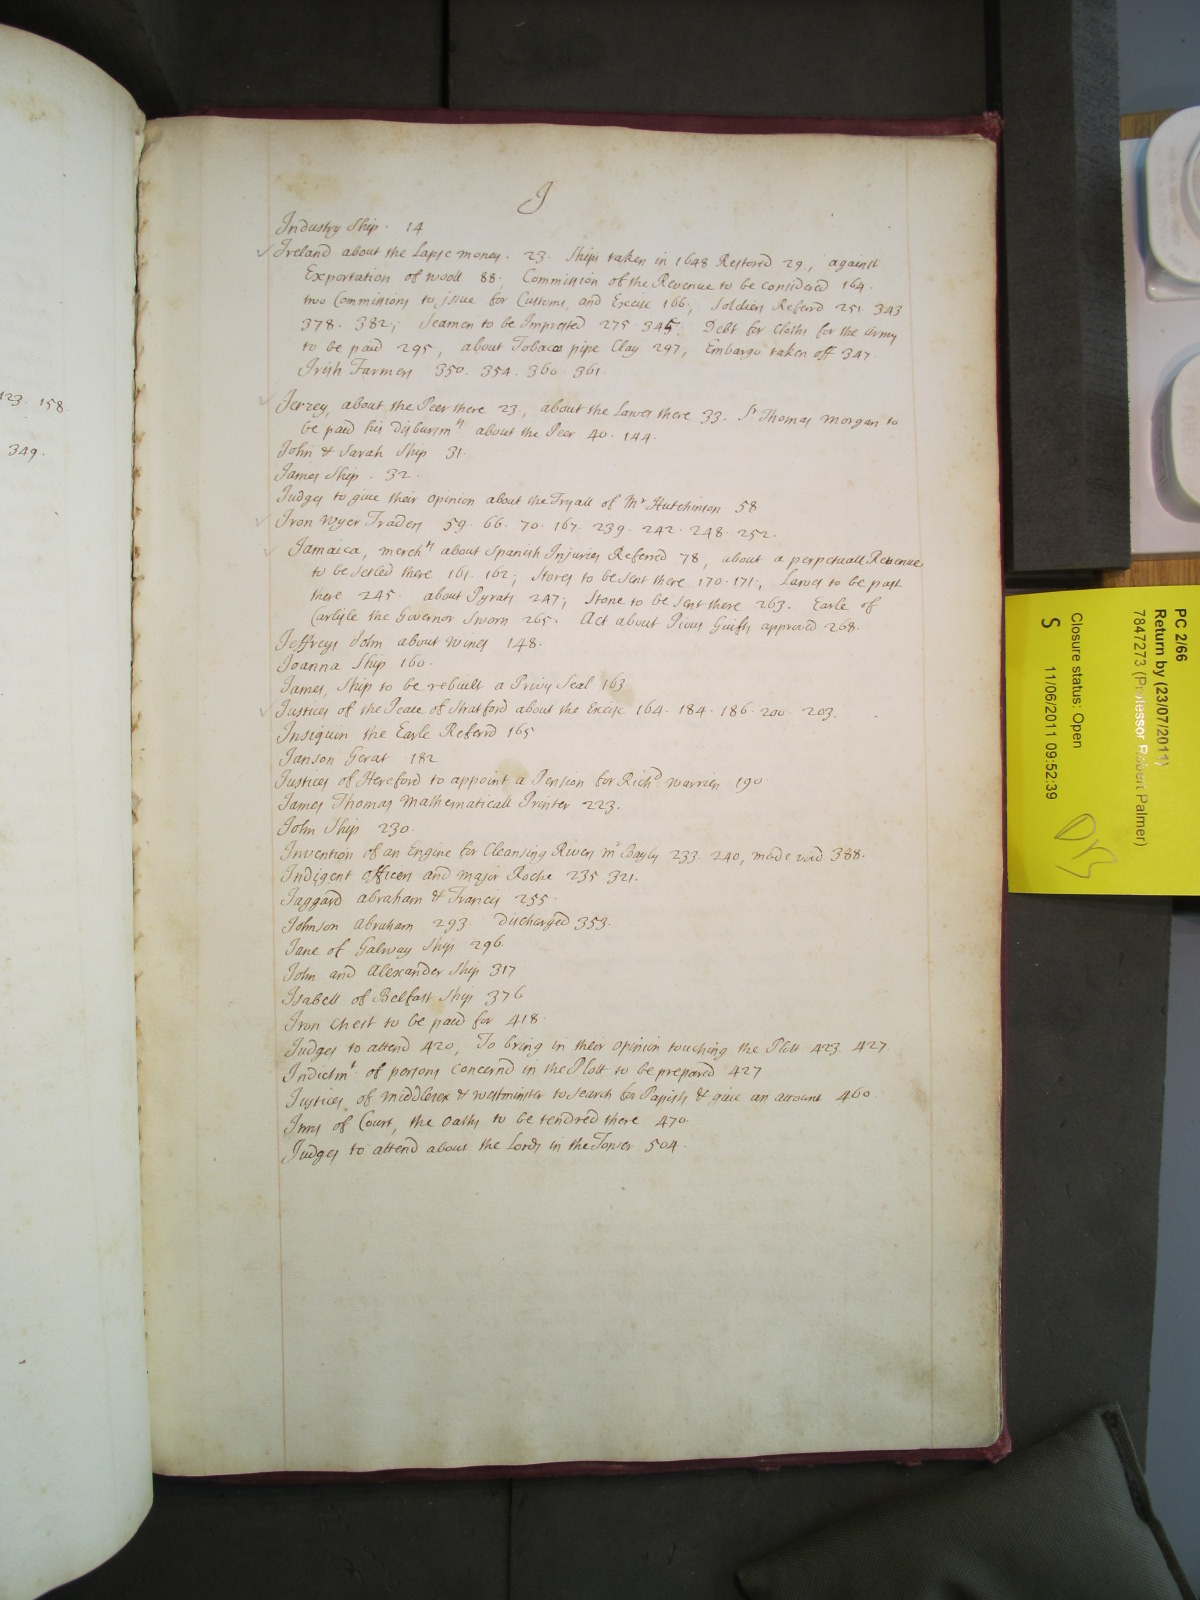 123. 158.
349.
J
Industry Ship. 14
Ireland about the Lapse money. 23. Ships taken in 1648 Restored 29, against
Exportation of wooll 88; Commission of the Revenue to be considered 164.
two Commissions to issue for Customs, and Excise 166; Soldiers Referrd 251. 343
378. 382; Seamen to be Imprested 275. 345; Debt for Cloths for the Army
to be paid 295, about Tobaco pipe Clay 297, Embargo taken off 347.
Irish Farmers 350. 354. 360. 361.
Jerzey, about the Peer there 23, about the Lawes there 33. Sr. Thomas Morgan to
be paid his disbursmts about the Peer 40. 144.
John & Sarah Ship 31.
James Ship. 32.
Judges to give their opinion about the Tryall of Mr Hutchinson 58
Iron Wyer Traders 59. 66. 70. 167. 239. 242. 248. 252.
Jamaica, merchts about Spanish Injuries Referred 78, about a perpetuall Revenue
to be setled there 161. 162; Stores to be sent there 170. 171; Lawes to be past
there 245. about Pyrats 247; Stone to be sent there 263. Earle of
Carlyle the Governor Sworn 265. Act about Pious Guifts approved 268.
Jeffreys John about Wines 148.
Joanna Ship 160.
James, Ship to be rebuilt a Privy Seal 163
Justices of the Peace of Stratford about the Excise 164. 184. 186. 200. 203.
Insiquin the Earle Referrd 165
Janson Gerat 182
Justices of Hereford to appoint a Pension for Richd Warrien 190
James Thomas Mathematicall Printer 223.
John Ship 230.
Invention of an Engine for Cleansing Rivers mr Bayly 233. 240, made void 388.
Indigent officers and major Roche 235 321.
Jaggard Abraham & Francis 255.
Johnson Abraham 293. Discharged 353.
Jane of Galway Ship 296
John and Alexander Ship 317
Isabell of Belfast Ship 376
Iron Chest to be paid for 418.
Judges to attend 420, To bring in their opinion touching the Plott 423. 427.
Indictmt of persons Concernd in the Plott to be prepared 427
Justices of Middlesex & Westminster to search for Papists & give an account 460.
Inns of Court, the Oaths to be tendred there 470.
Judges to attend about the Lords in the Tower 504.
PC 2/66
Return by (23/07/2011)
7847273 (Professor Robert Palmer)
Closure status: Open
S 11/06/2011 09:52:39